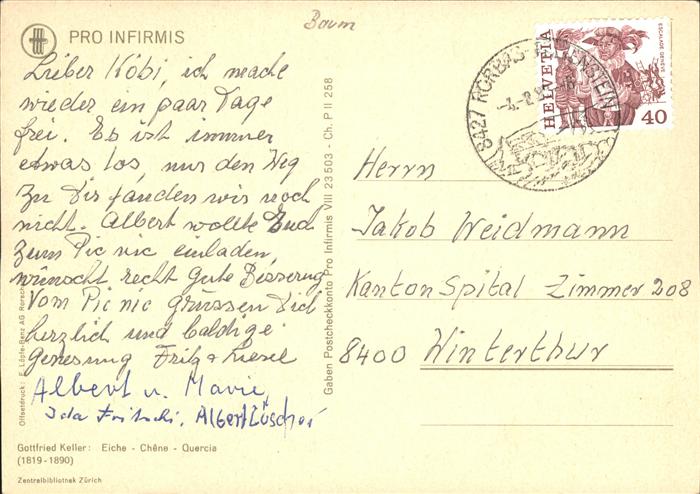 Baum
PRO INFIRMIS
Lieber Köbi, ich mache
wieder ein paar Tage
frei. Es ist immer
etwas los, nur den Weg
zu Dir fanden wir noch
nicht. Albert wollte Euch
zum Pic nic einladen,
wünscht recht gute Besserung
Vom Pic nic grüssen Dich
herzlich und baldige
Genesung Fritz + Liesel
Albert u. Marie,
Ida Fritschi, Albert Lüscher
Gottfried Keller: Eiche - Chêne - Quercia
(1819-1890)
Zentralbibliothek Zürich
Offsetdruck: F. Löpfe-Benz AG Rorsch
Gaben Postcheckkonto Pro Infirmis VIII 23503 - Ch. P II 258
8427 RORBAS-F
ENSTEIN
-4.-8.8
HELVETIA
ESCALADE GENÈVE
40
Herrn
Jakob Weidmann
Kanton Spital Zimmer 208
8400 Winterthur